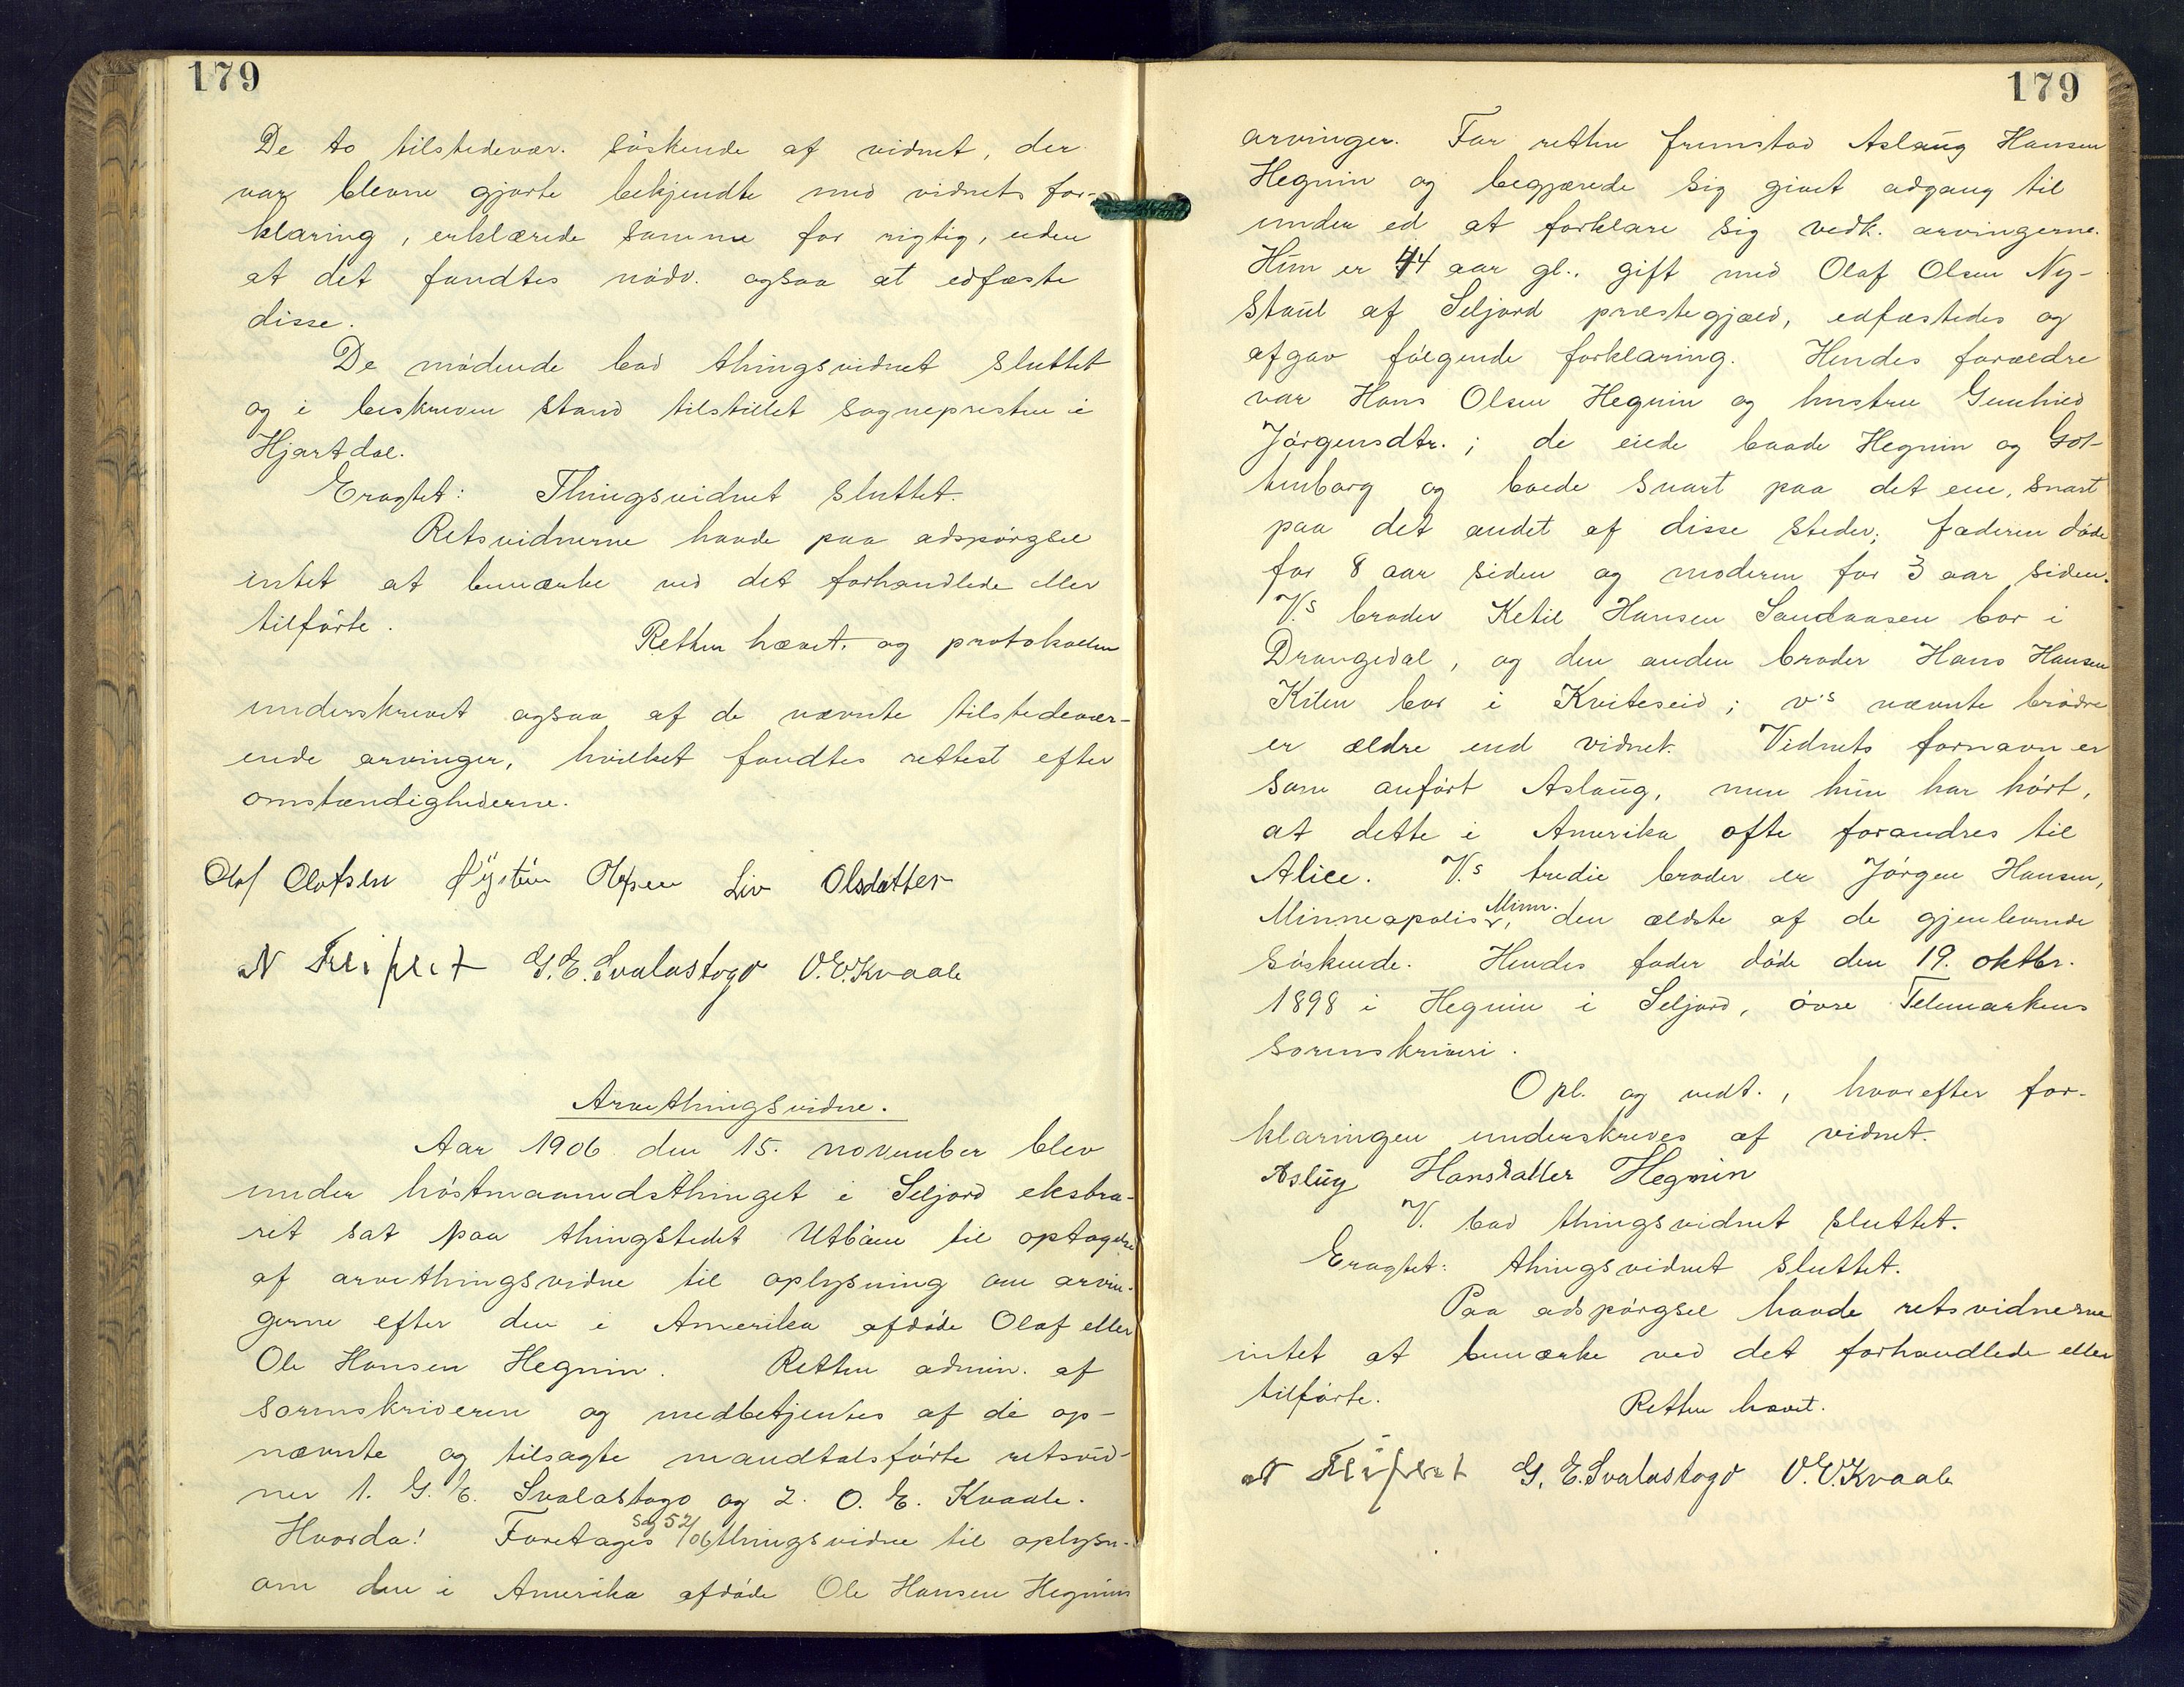 179
De to tilstedevær. söskende af vidnet, der
var blevne gjorte bekjendte med vidnets for-
klaring, erklærede samme for rigtig, uden
at det fandtes nödv. ogsaa at edfæste
disse.
De mödende bad thingsvidnet sluttet
og i beskreven stand tilstillet sognepresten i
Hjartdal.
Eragtet: Thingsvidnet sluttet.
Retsvidnerne havde paa adspörgsel
intet at bemærke ved det forhandlede eller
tilförte.
Retten hævet, og protokollen
underskrevet ogsaa af de nævnte tilstedevær-
ende arvinger, hvilket fandtes rettest efter
omstændighederne.
Olaf Olafsen Öystein Liv Olsdatter
N G. E. Svalastogo O. E. Kvaale
Arvethingsvidne.
Aar 1906 den 15. november blev
under höstmaanedsthinget i Seljord ekstra-
ret sat paa thingstedet Utböen til optagelse
af arvethingsvidne til oplysning om arvin-
gerne efter den i Amerika afdöde Olaf eller
Ole Hansen Hegnin. Retten admin. af
sorenskriveren og medbetjentes af de op-
nævnte og tilsagte mandtalsförte retsvid-
ner 1. G. E. Svalastogo og 2. O. E. Kvaale.
Hvorda! Foretages sag 52/06 thingsvidne til oplysn.
om den i Amerika afdöde Ole Hansen Hegnins
179
arvinger. For retten fremstod Aslaug Hansen
Hegnin og begjærede sig givet adgang til
under ed at forklare sig vedk. arvingerne.
Hun er 44 aar gl., gift med Olaf Olsen Ny-
staul af Seljord prestegjæld, edfæstedes og
afgav fölgende forklaring. Hendes forældre
var Hans Olsen Hegnin og hustru Gunhild
Jörgensdtr.; de eiede baade Hegnin og Got-
tenborg og boede snart paa det ene, snart
paa det andet af disse steder; faderen döde
for 8 aar siden og moderen for 3 aar siden.
V.s broder Ketil Hansen Sandaasen bor i
Drangedal, og den anden broder Hans Hansen
Kilen bor i Kviteseid; v.s nævnte brödre
er ældre end vidnet. Vidnets fornavn er
som anfört Aslaug, men hun har hört,
at dette i Amerika ofte forandres til
Alice. V.s tredie broder er Jörgen Hansen,
Minneapolis, Minn. den ældste af de gjenlevende
söskende. Hendes fader döde den 19. oktbr.
1898 i Hegnin i Seljord, övre Telemarkens
sorenskriveri.
Opl. og vedt., hvorefter for-
klaringen underskreves af vidnet.
Aslüg Hansdatter Hegnin
V. bad thingsvidnet sluttet.
Eragtet: thingsvidnet sluttet.
Paa adspörgsel havde retsvidnerne
intet at bemærke ved det forhandlede eller
tilförte.
Retten hævet.
N G. E. Svalastogo O. E. Kvaale